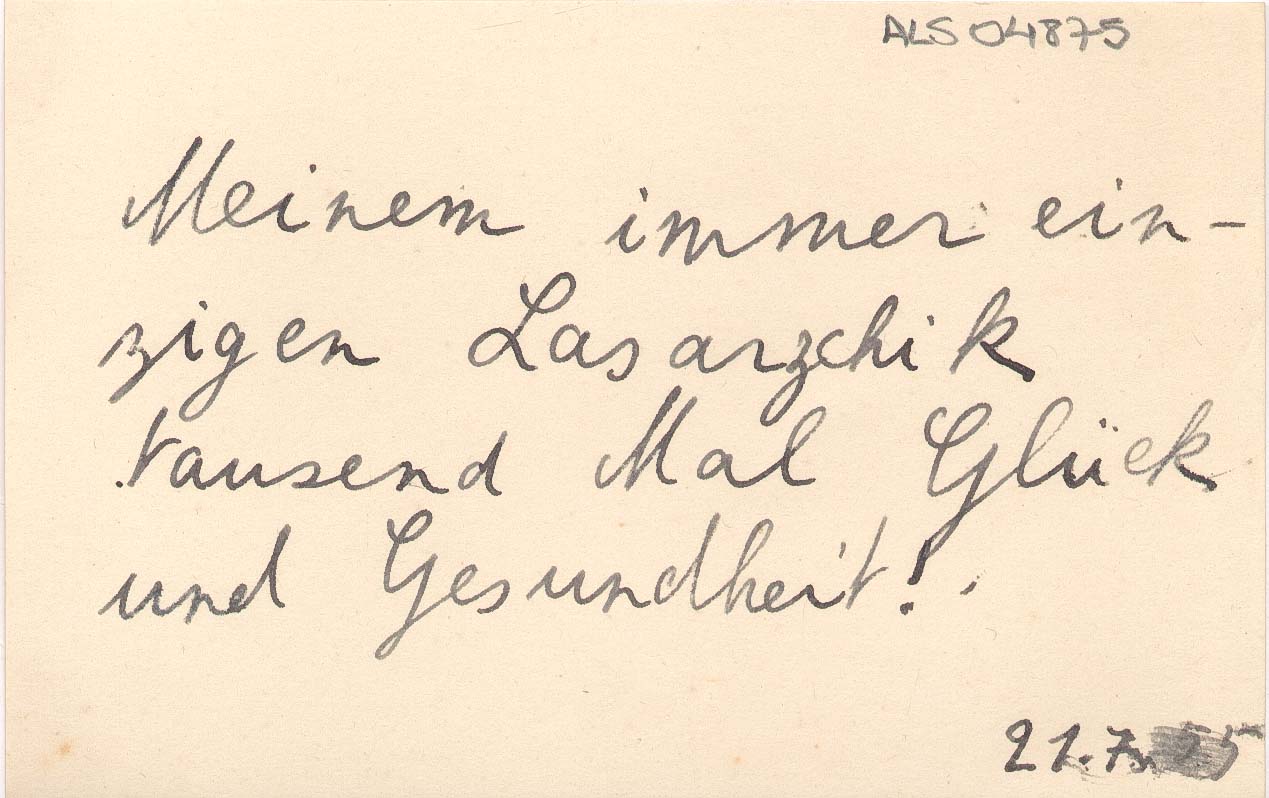 ALS 04875
Meinem immer ein-
zigen Lasarzchik
tausend Mal Glück
und Gesundheit!
21.7.